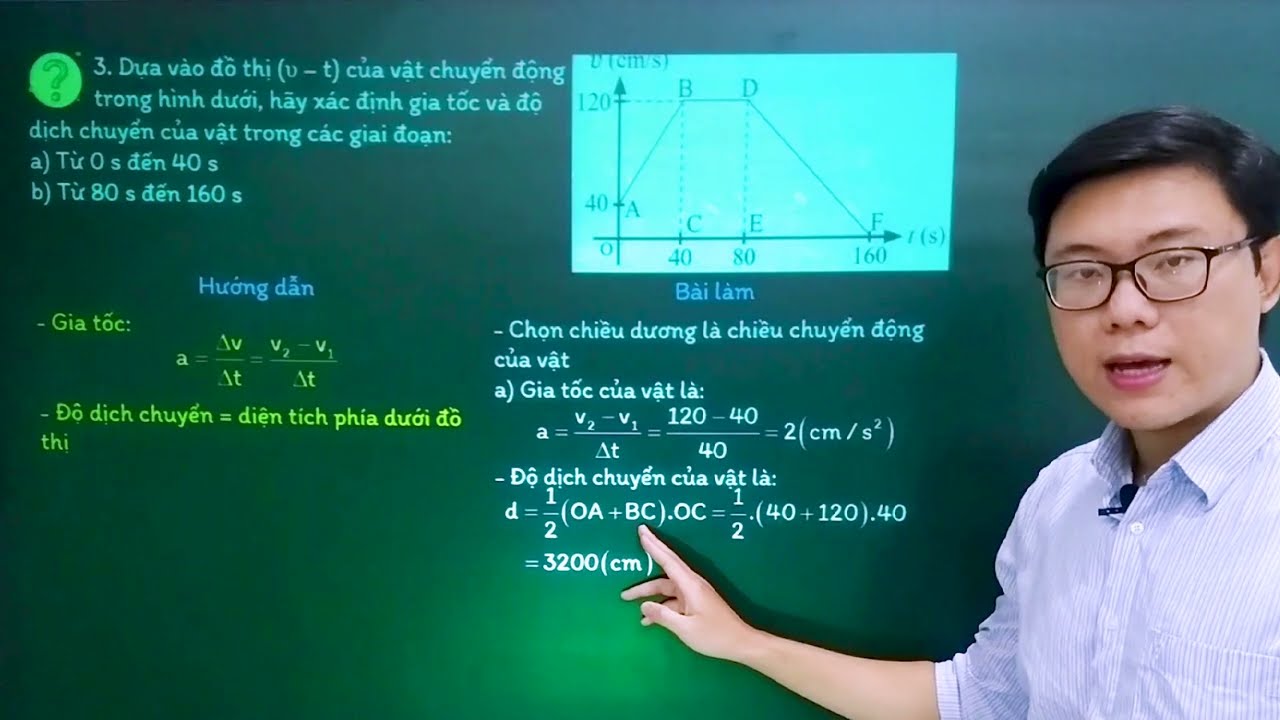 ?
3. Dựa vào đồ thị (υ – t) của vật chuyển động
trong hình dưới, hãy xác định gia tốc và độ
dịch chuyển của vật trong các giai đoạn:
a) Từ 0 s đến 40 s
b) Từ 80 s đến 160 s
υ (cm/s)
B D
120
40 A
C E F
O 40 80 160 t (s)
Hướng dẫn
- Gia tốc:
a = Δv/Δt = (v₂ – v₁)/Δt
- Độ dịch chuyển = diện tích phía dưới đồ
thị
Bài làm
- Chọn chiều dương là chiều chuyển động
của vật
a) Gia tốc của vật là:
a = (v₂ – v₁)/Δt = (120 – 40)/40 = 2(cm/s²)
- Độ dịch chuyển của vật là:
d = 1/2(OA + BC).OC = 1/2.(40 + 120).40
= 3200(cm)